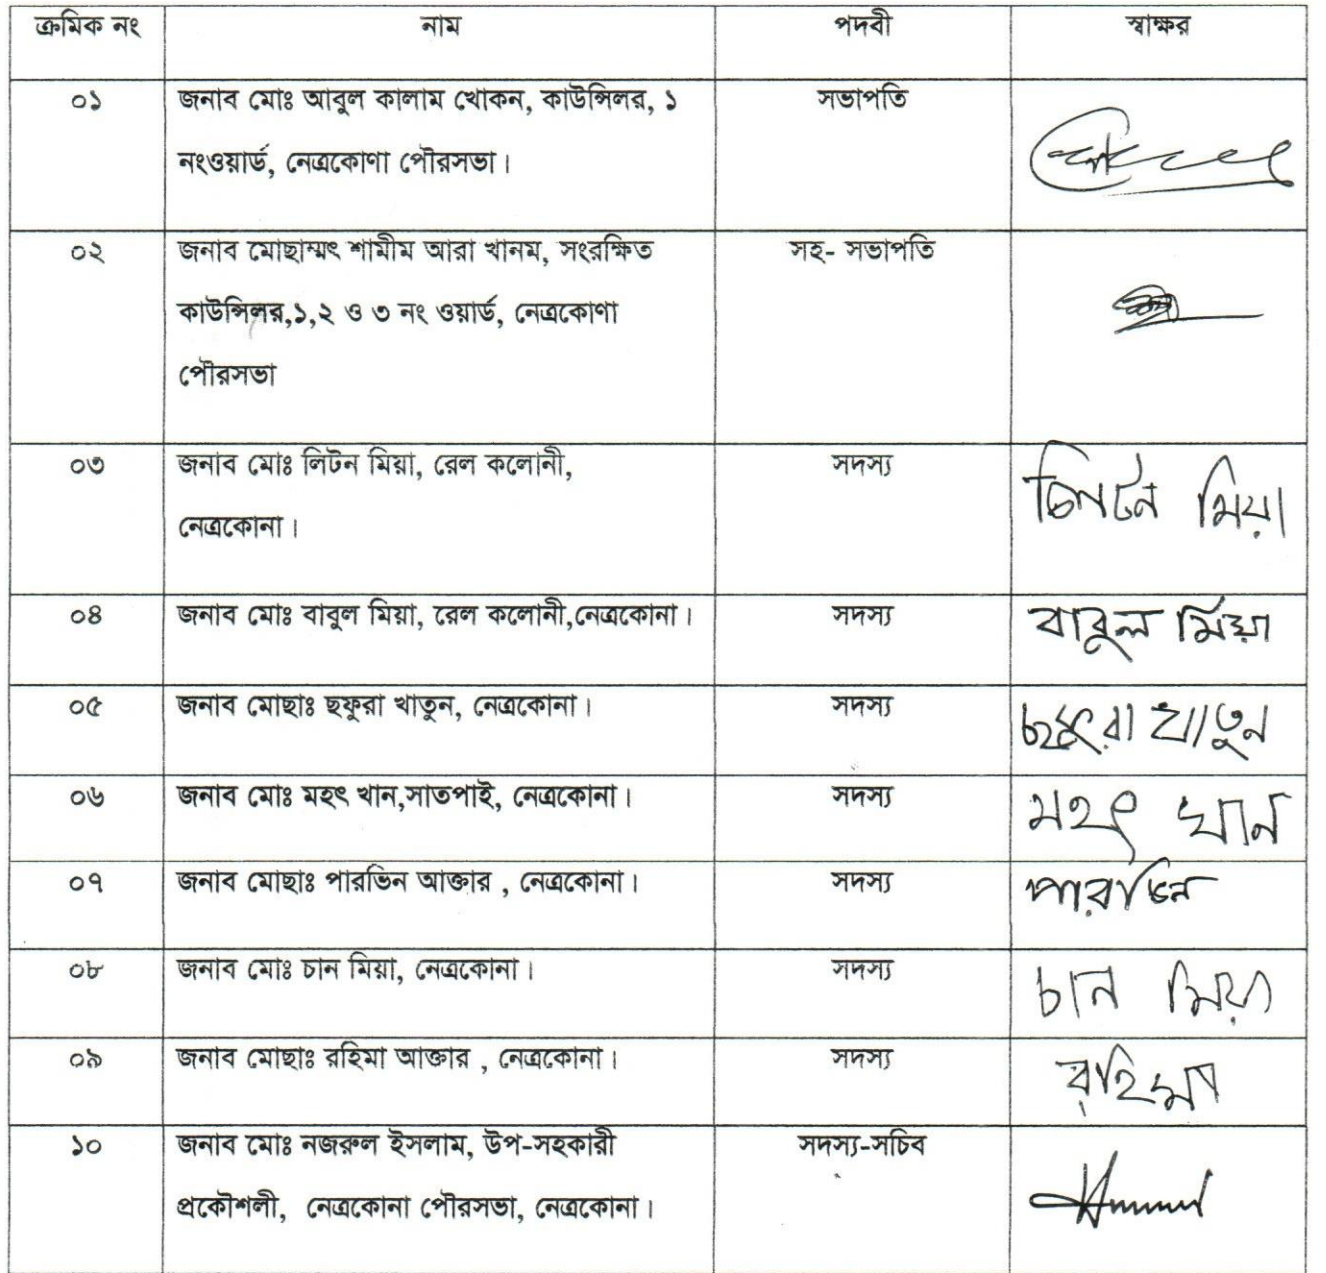 ক্রমিক নং নাম পদবী স্বাক্ষর
০১ জনাব মোঃ আবুল কালাম খোকন, কাউন্সিলর, ১ সভাপতি
নংওয়ার্ড, নেত্রকোণা পৌরসভা।
০২ জনাব মোছাম্মৎ শামীম আরা খানম, সংরক্ষিত সহ- সভাপতি
কাউন্সিলর,১,২ ও ৩ নং ওয়ার্ড, নেত্রকোণা
পৌরসভা
০৩ জনাব মোঃ লিটন মিয়া, রেল কলোনী, সদস্য লিটন মিয়া
নেত্রকোনা।
০৪ জনাব মোঃ বাবুল মিয়া, রেল কলোনী,নেত্রকোনা। সদস্য বাবুল মিয়া
০৫ জনাব মোছাঃ ছফুরা খাতুন, নেত্রকোনা। সদস্য ছফুরা খাতুন
০৬ জনাব মোঃ মহৎ খান,সাতপাই, নেত্রকোনা। সদস্য মহৎ খান
০৭ জনাব মোছাঃ পারভিন আক্তার , নেত্রকোনা। সদস্য পারভিন
০৮ জনাব মোঃ চান মিয়া, নেত্রকোনা। সদস্য চান মিয়া
০৯ জনাব মোছাঃ রহিমা আক্তার , নেত্রকোনা। সদস্য রহিমা
১০ জনাব মোঃ নজরুল ইসলাম, উপ-সহকারী সদস্য-সচিব
প্রকৌশলী, নেত্রকোনা পৌরসভা, নেত্রকোনা।